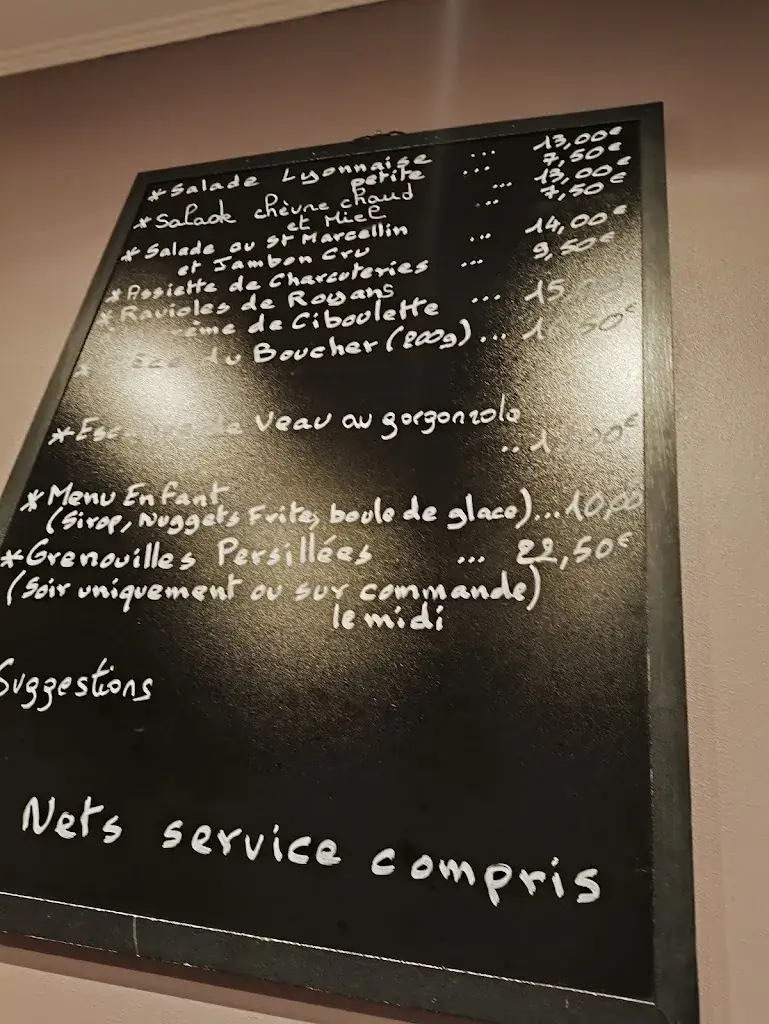 *Salade Lyonnaise ... 13,00€
petite ... 7,50€
*Salade chèvre chaud ... 13,00€
et Miel ... 7,50€
*Salade ou St Marcellin
et Jambon Cru ... 14,00€
*Assiette de Charcuteries ... 9,50€
*Ravioles de Royans
crème de Ciboulette ... 15,
du Boucher (200g) ...
* de Veau au gorgonzola
..
*Menu Enfant
(Sirop, Nuggets Frite, boule de glace) ... 10,00
*Grenouilles Persillées ... 22,50€
(Soir uniquement ou sur commande)
le midi
Suggestions
Nets service compris